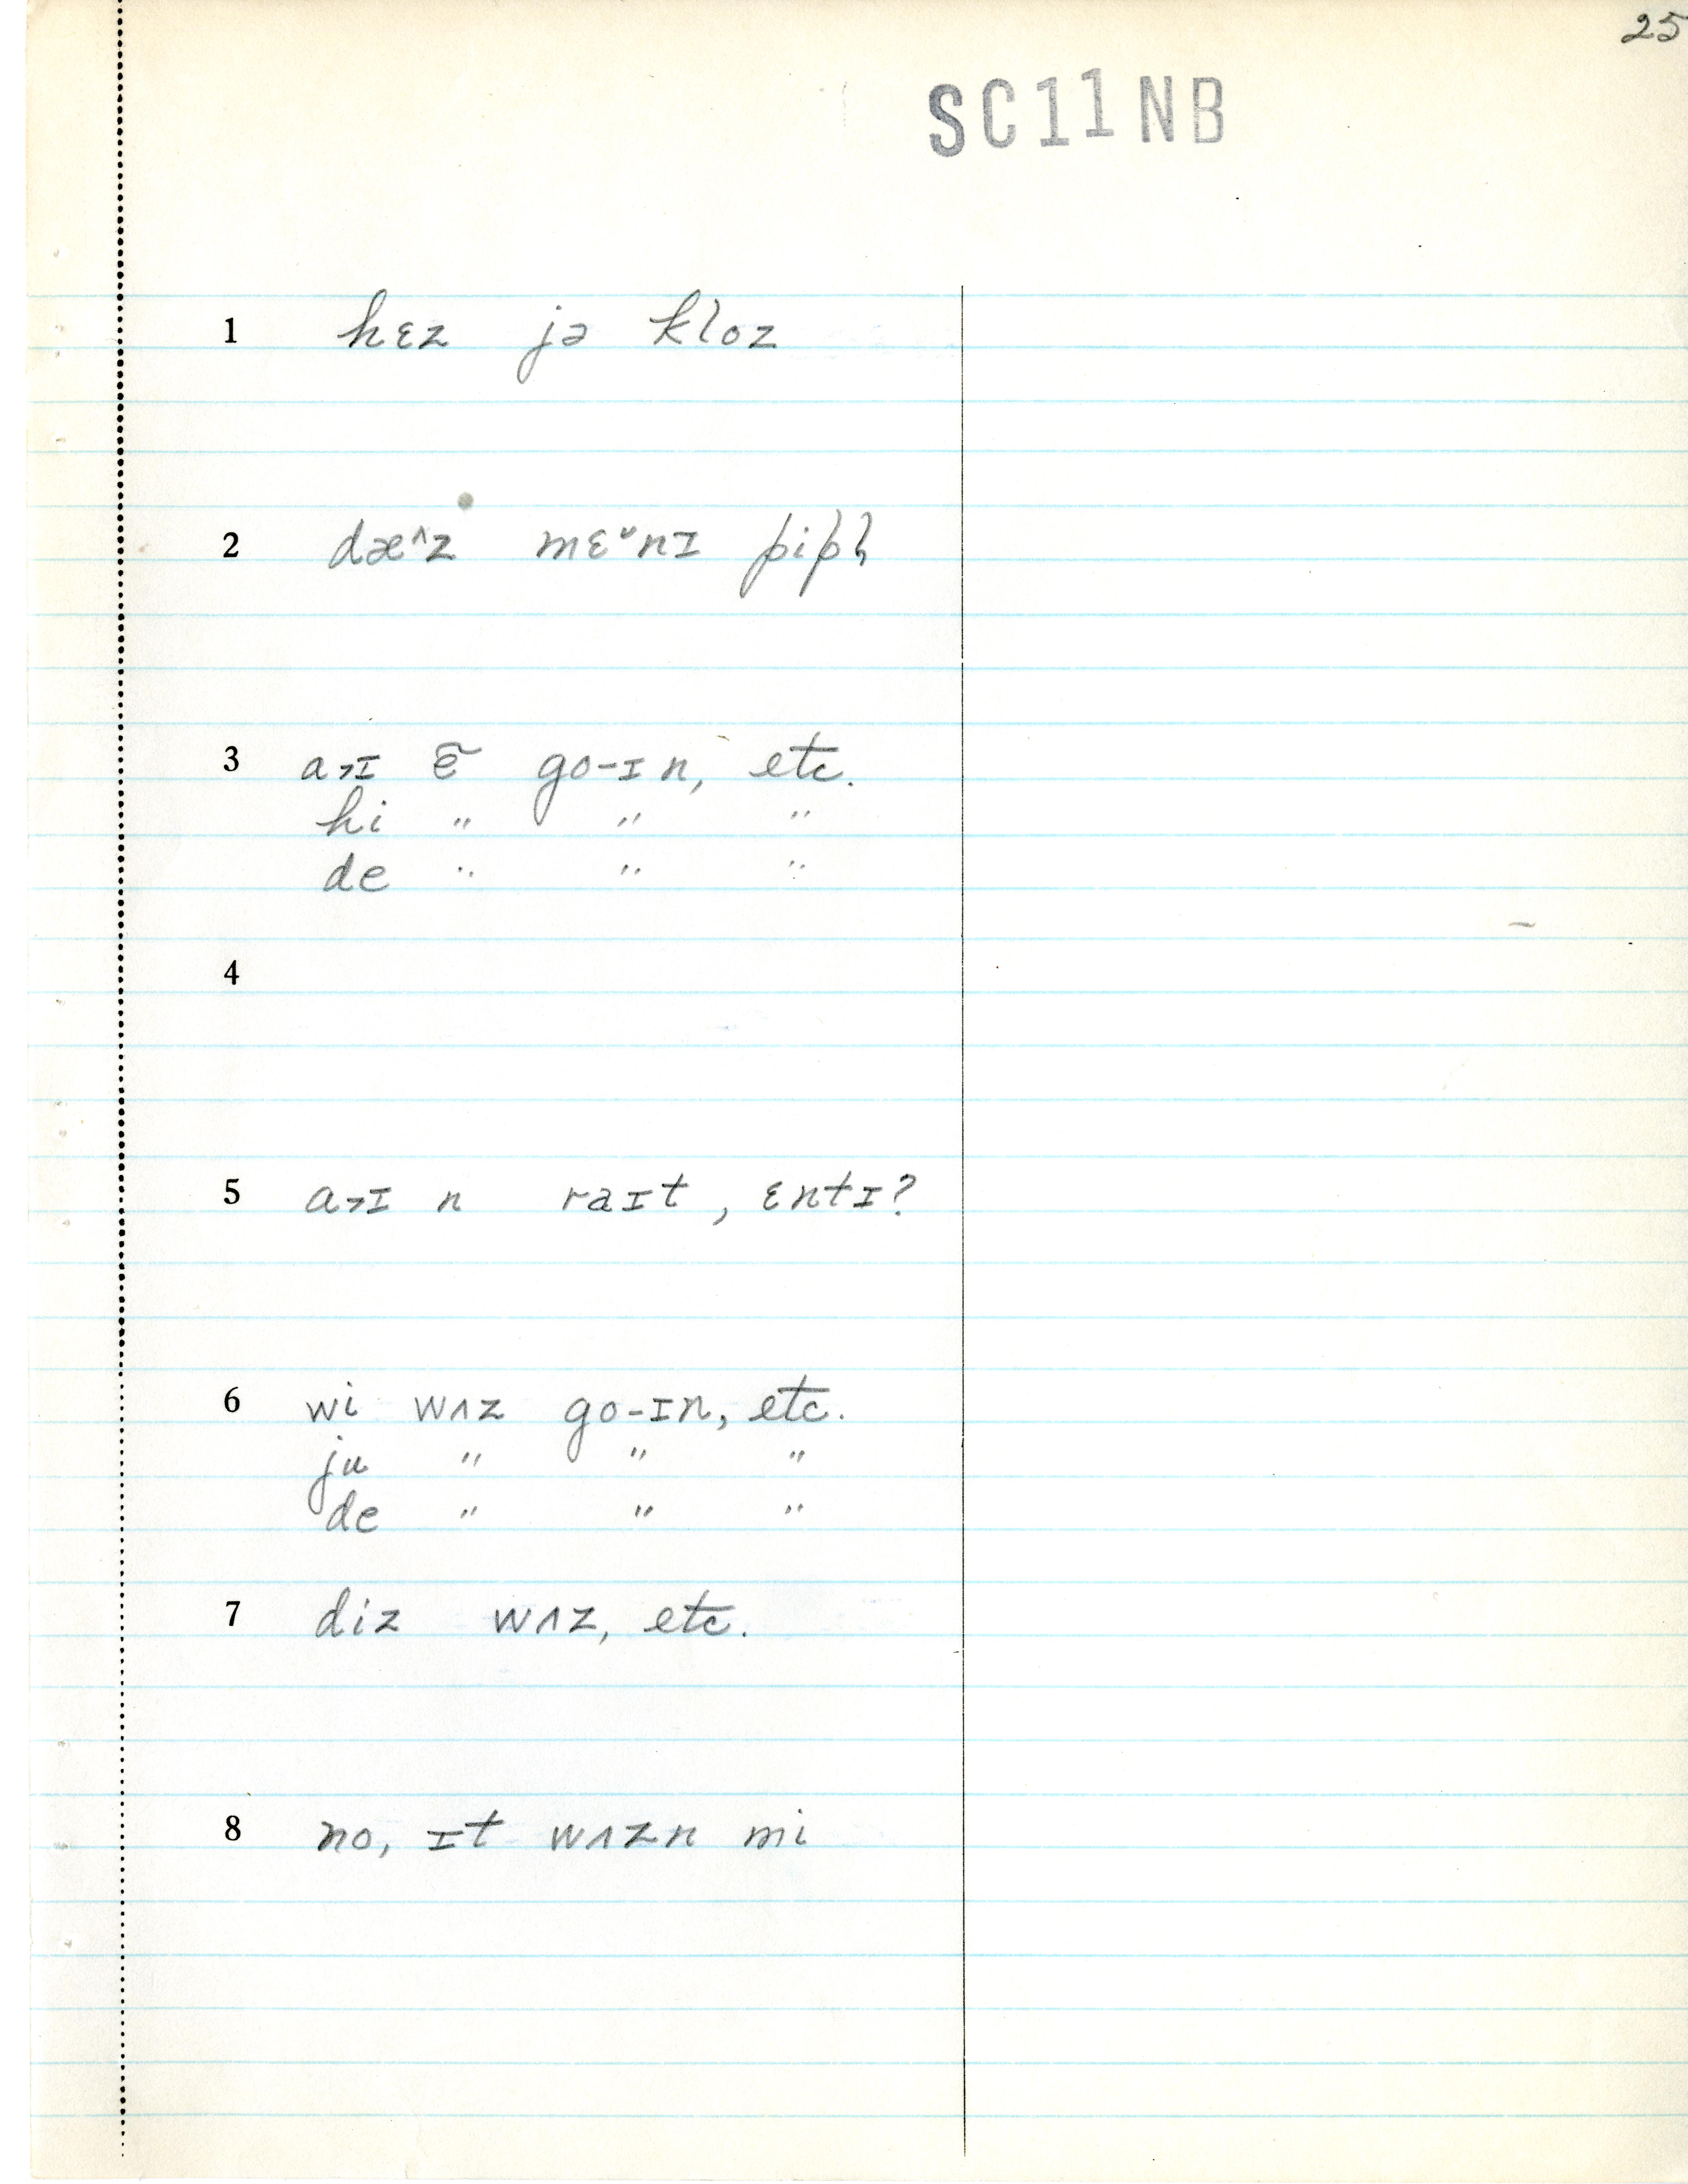 25
SC11NB
1 hɛz jə kloz
2 dæ^z mɛ˅nɪ pipl̩
3 a˃ɪ ẽ go-ɪn, etc.
hi " " "
de " " "
4
5 a˃ɪ n raɪt, ɛntɪ?
6 wi wʌz go-ɪn, etc.
ju " " "
de " " "
7 diz wʌz, etc.
8 no, ɪt wʌzn mi